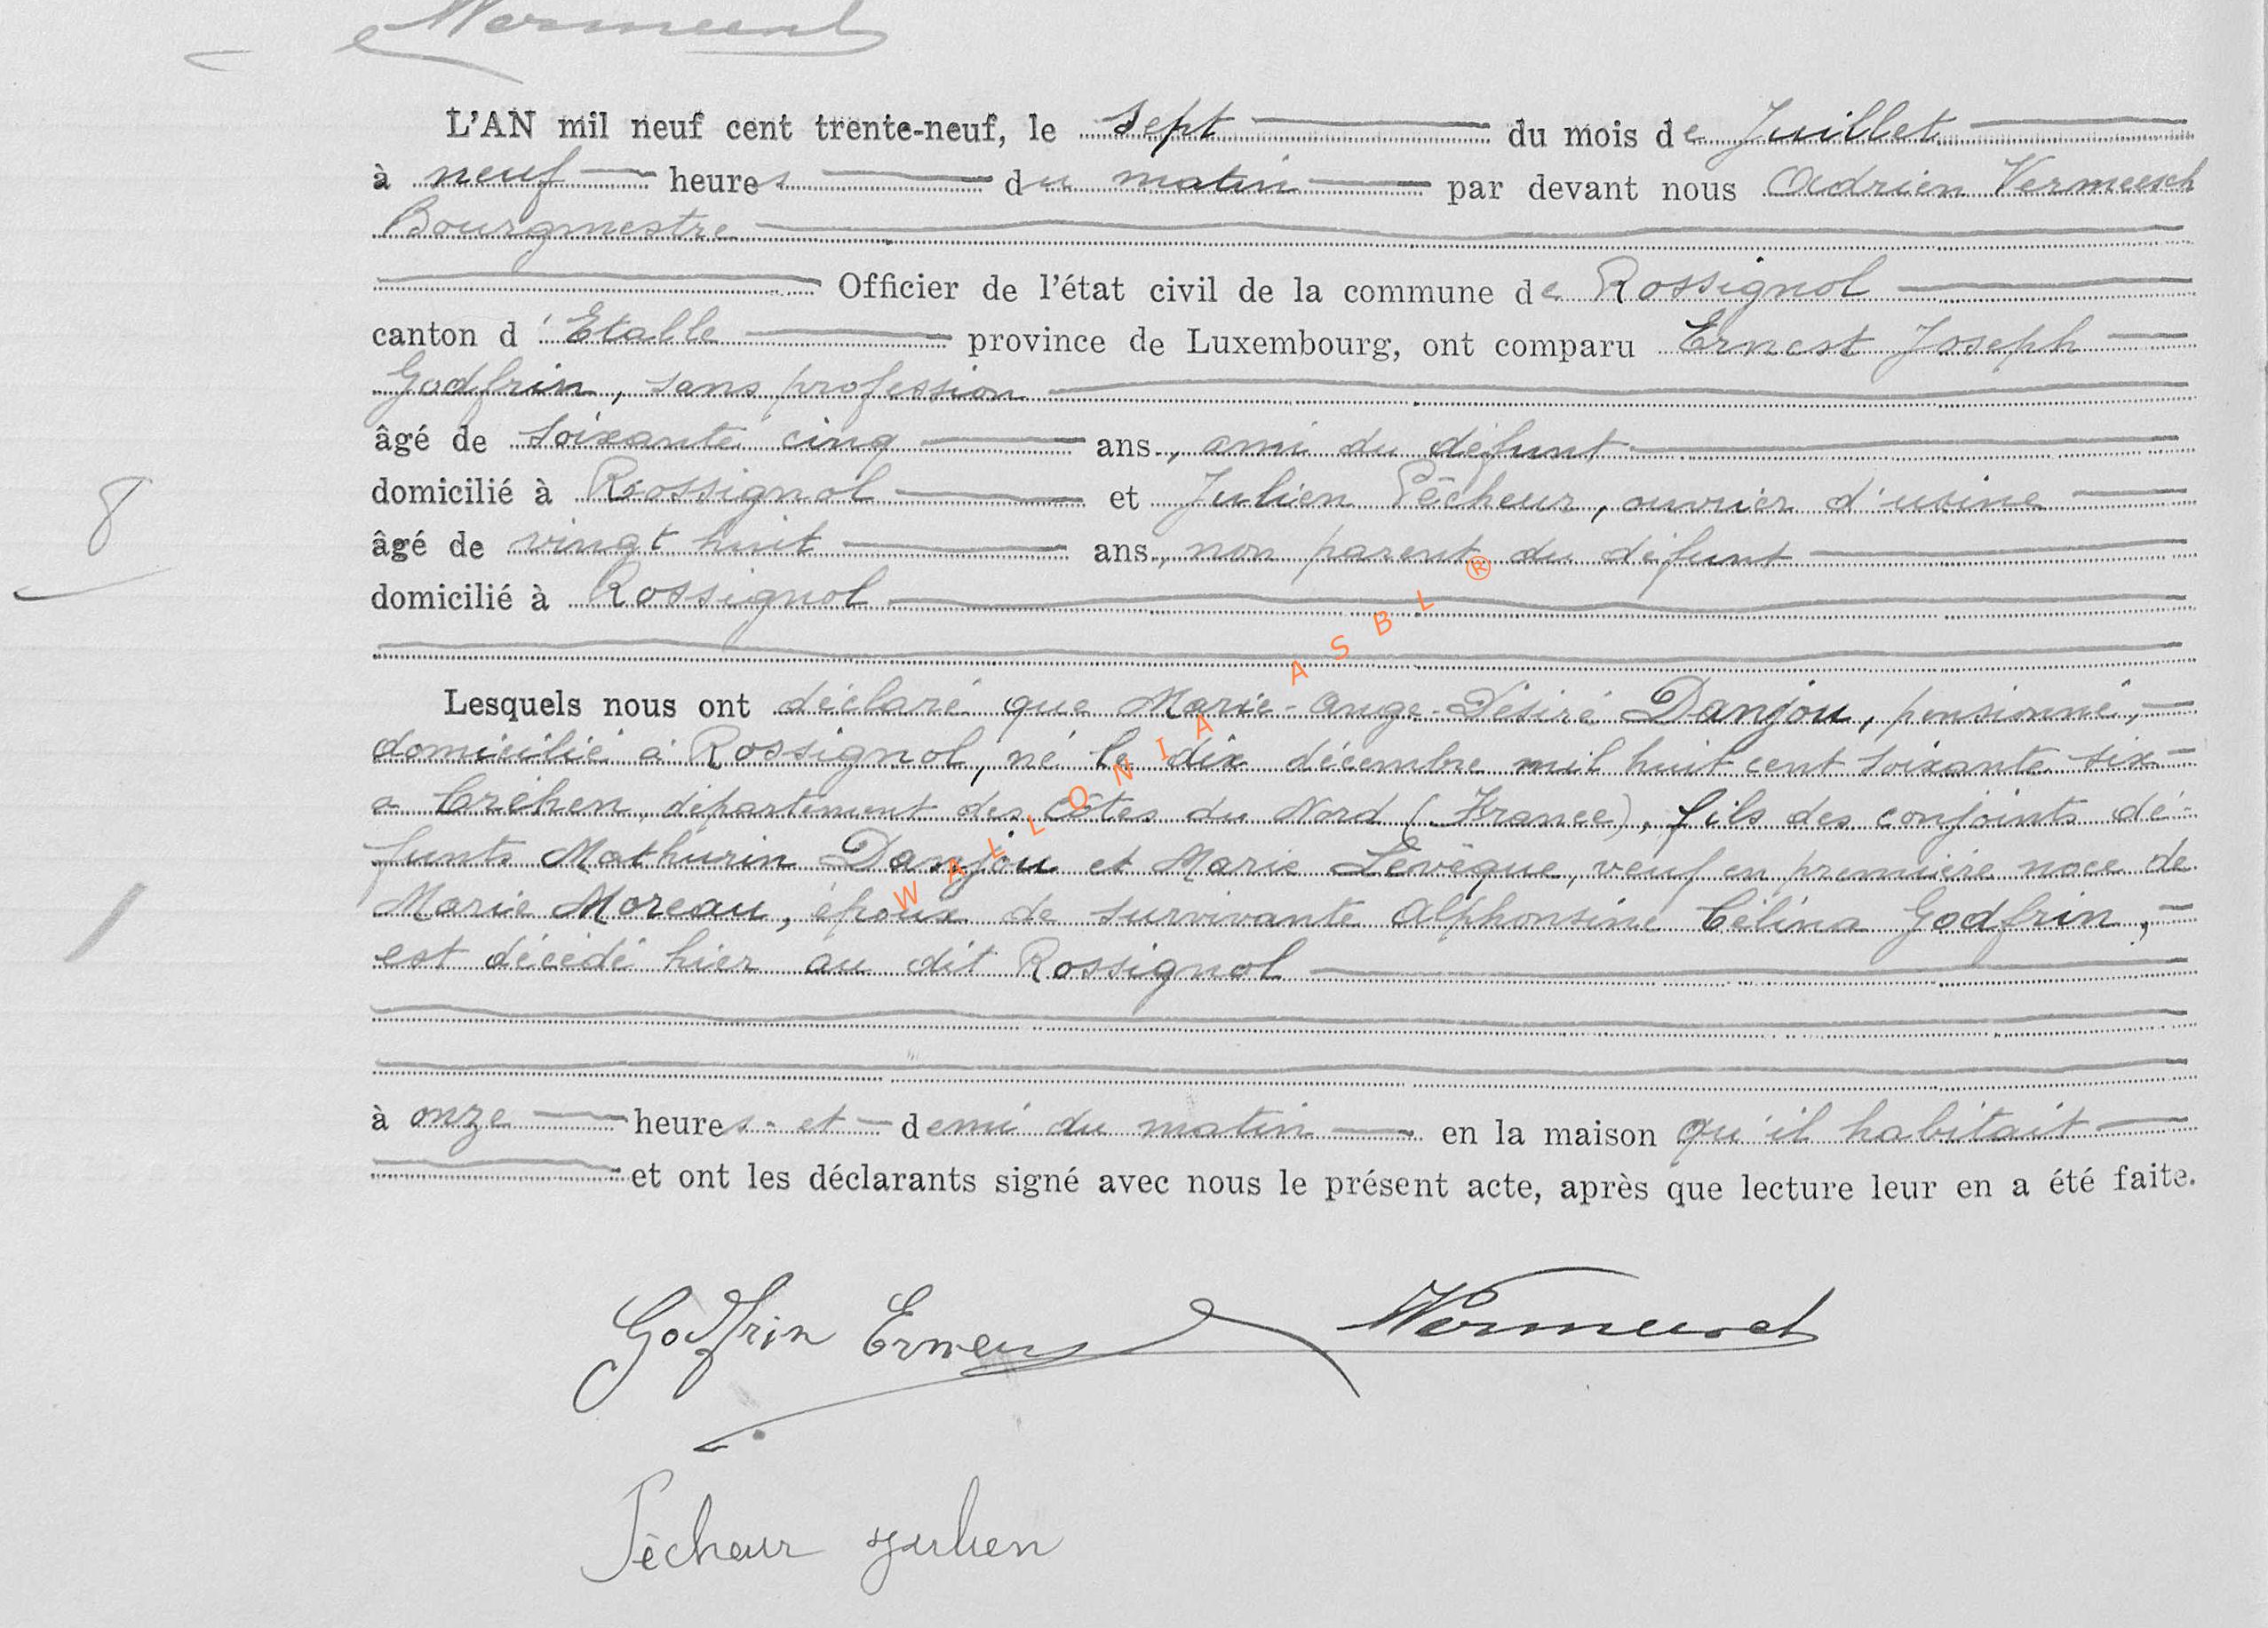 Vermeersch
L'AN mil neuf cent trente-neuf, le sept du mois de Juillet
à neuf heures du matin par devant nous Adrien Vermeesch
Bourgmestre
Officier de l'état civil de la commune de Rossignol
canton d'Etalle province de Luxembourg, ont comparu Ernest Joseph
Godfrin, sans profession
âgé de soixante cinq ans, ami du défunt
domicilié à Rossignol et Julien Pêcheur, ouvrier d'usine
8
âgé de vingt huit ans, non parent du défunt
domicilié à Rossignol
Lesquels nous ont déclaré que Marie-Ange-Désiré Danjou, pensionné,
domicilié à Rossignol, né le dix décembre mil huit cent soixante six
a Créhen, département des Côtes du Nord (France), fils des conjoints dé-
funts Mathurin Danjou et Marie Levêque, veuf en première noce de
Marie Moreau, époux de survivante Alphonsine Célina Godfrin,
est décédé hier au dit Rossignol
à onze heures et demi du matin en la maison qu'il habitait
et ont les déclarants signé avec nous le présent acte, après que lecture leur en a été faite.
Godfrin Ernest Vermeersch
Pêcheur Julien
WALLONIA ASBL ®